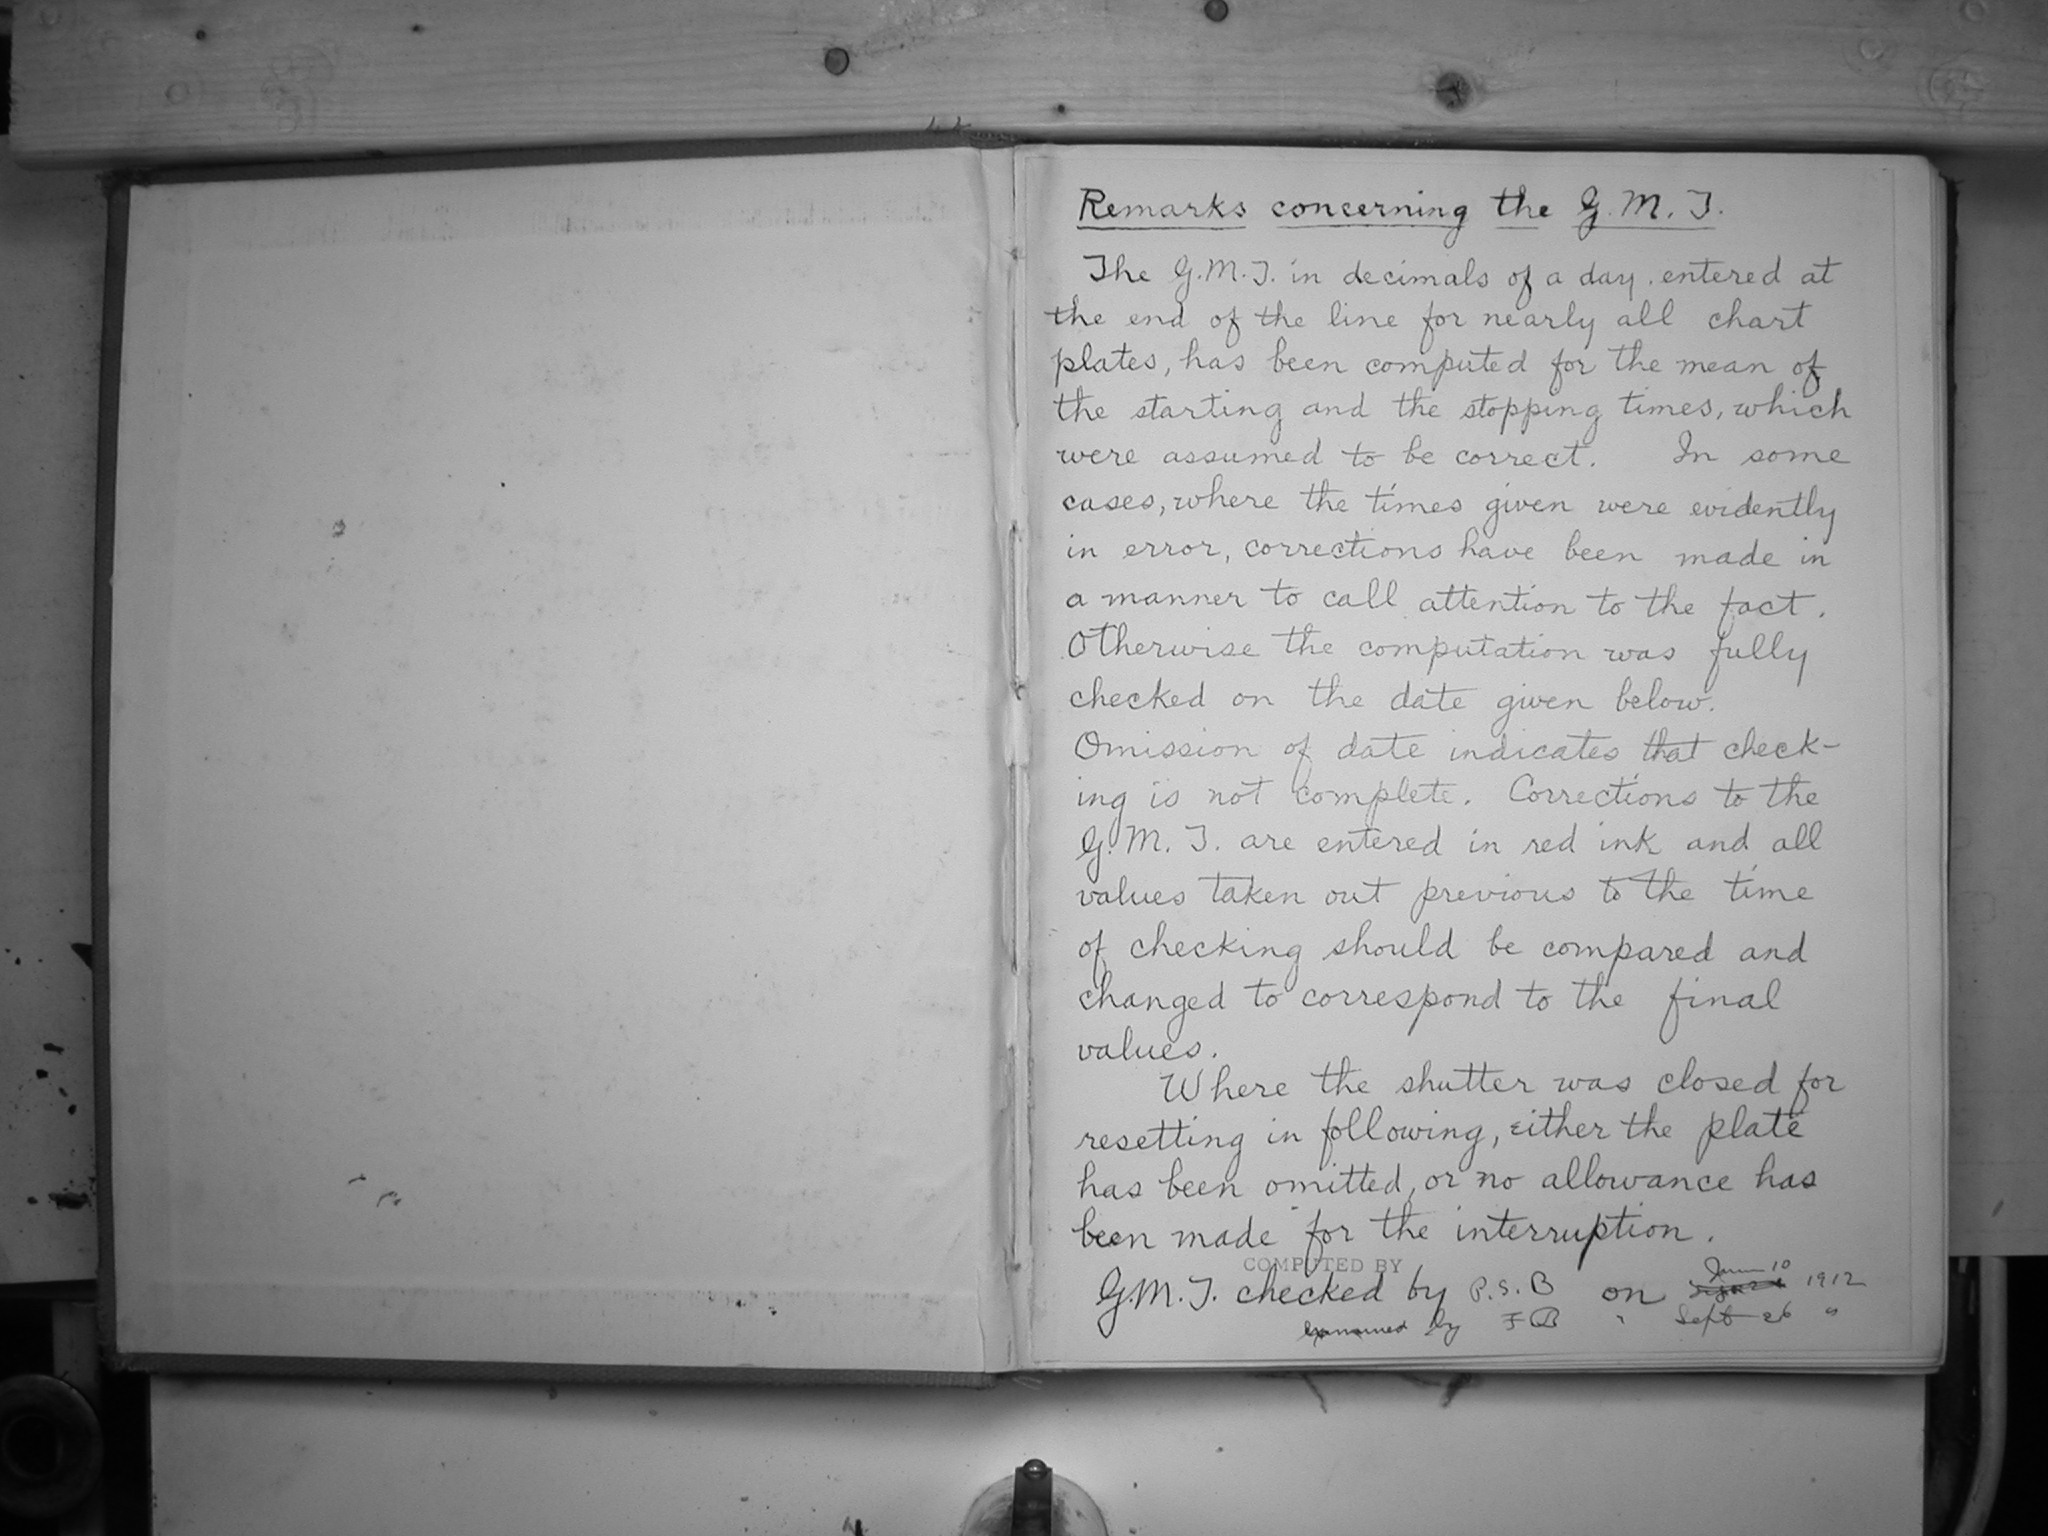 Remarks concerning the G.M.T.
The G.M.T. in decimals of a day entered at
the end of the line for nearly all chart
plates, has been computed for the mean of
the starting and the stopping times, which
were assumed to be correct. In some
cases, where the times given were evidently
in error, corrections have been made in
a manner to call attention to the fact.
Otherwise the computation was fully
checked on the date given below.
Omission of date indicates that check-
ing is not complete. Corrections to the
G.M.T. are entered in red ink and all
values taken out previous to the time
of checking should be compared and
changed to correspond to the final
values.
Where the shutter was closed for
resetting in following, either the plate
has been omitted, or no allowance has
been made for the interruption.
COMPUTED BY
G.M.T. checked by P.S.B on June 10 1912
Examined by " Sept 26 "